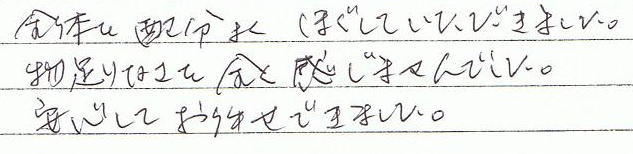 全体に配分よくほぐしていただきました。
物足りなさを全く感じませんでした。
安心してお任せできました。